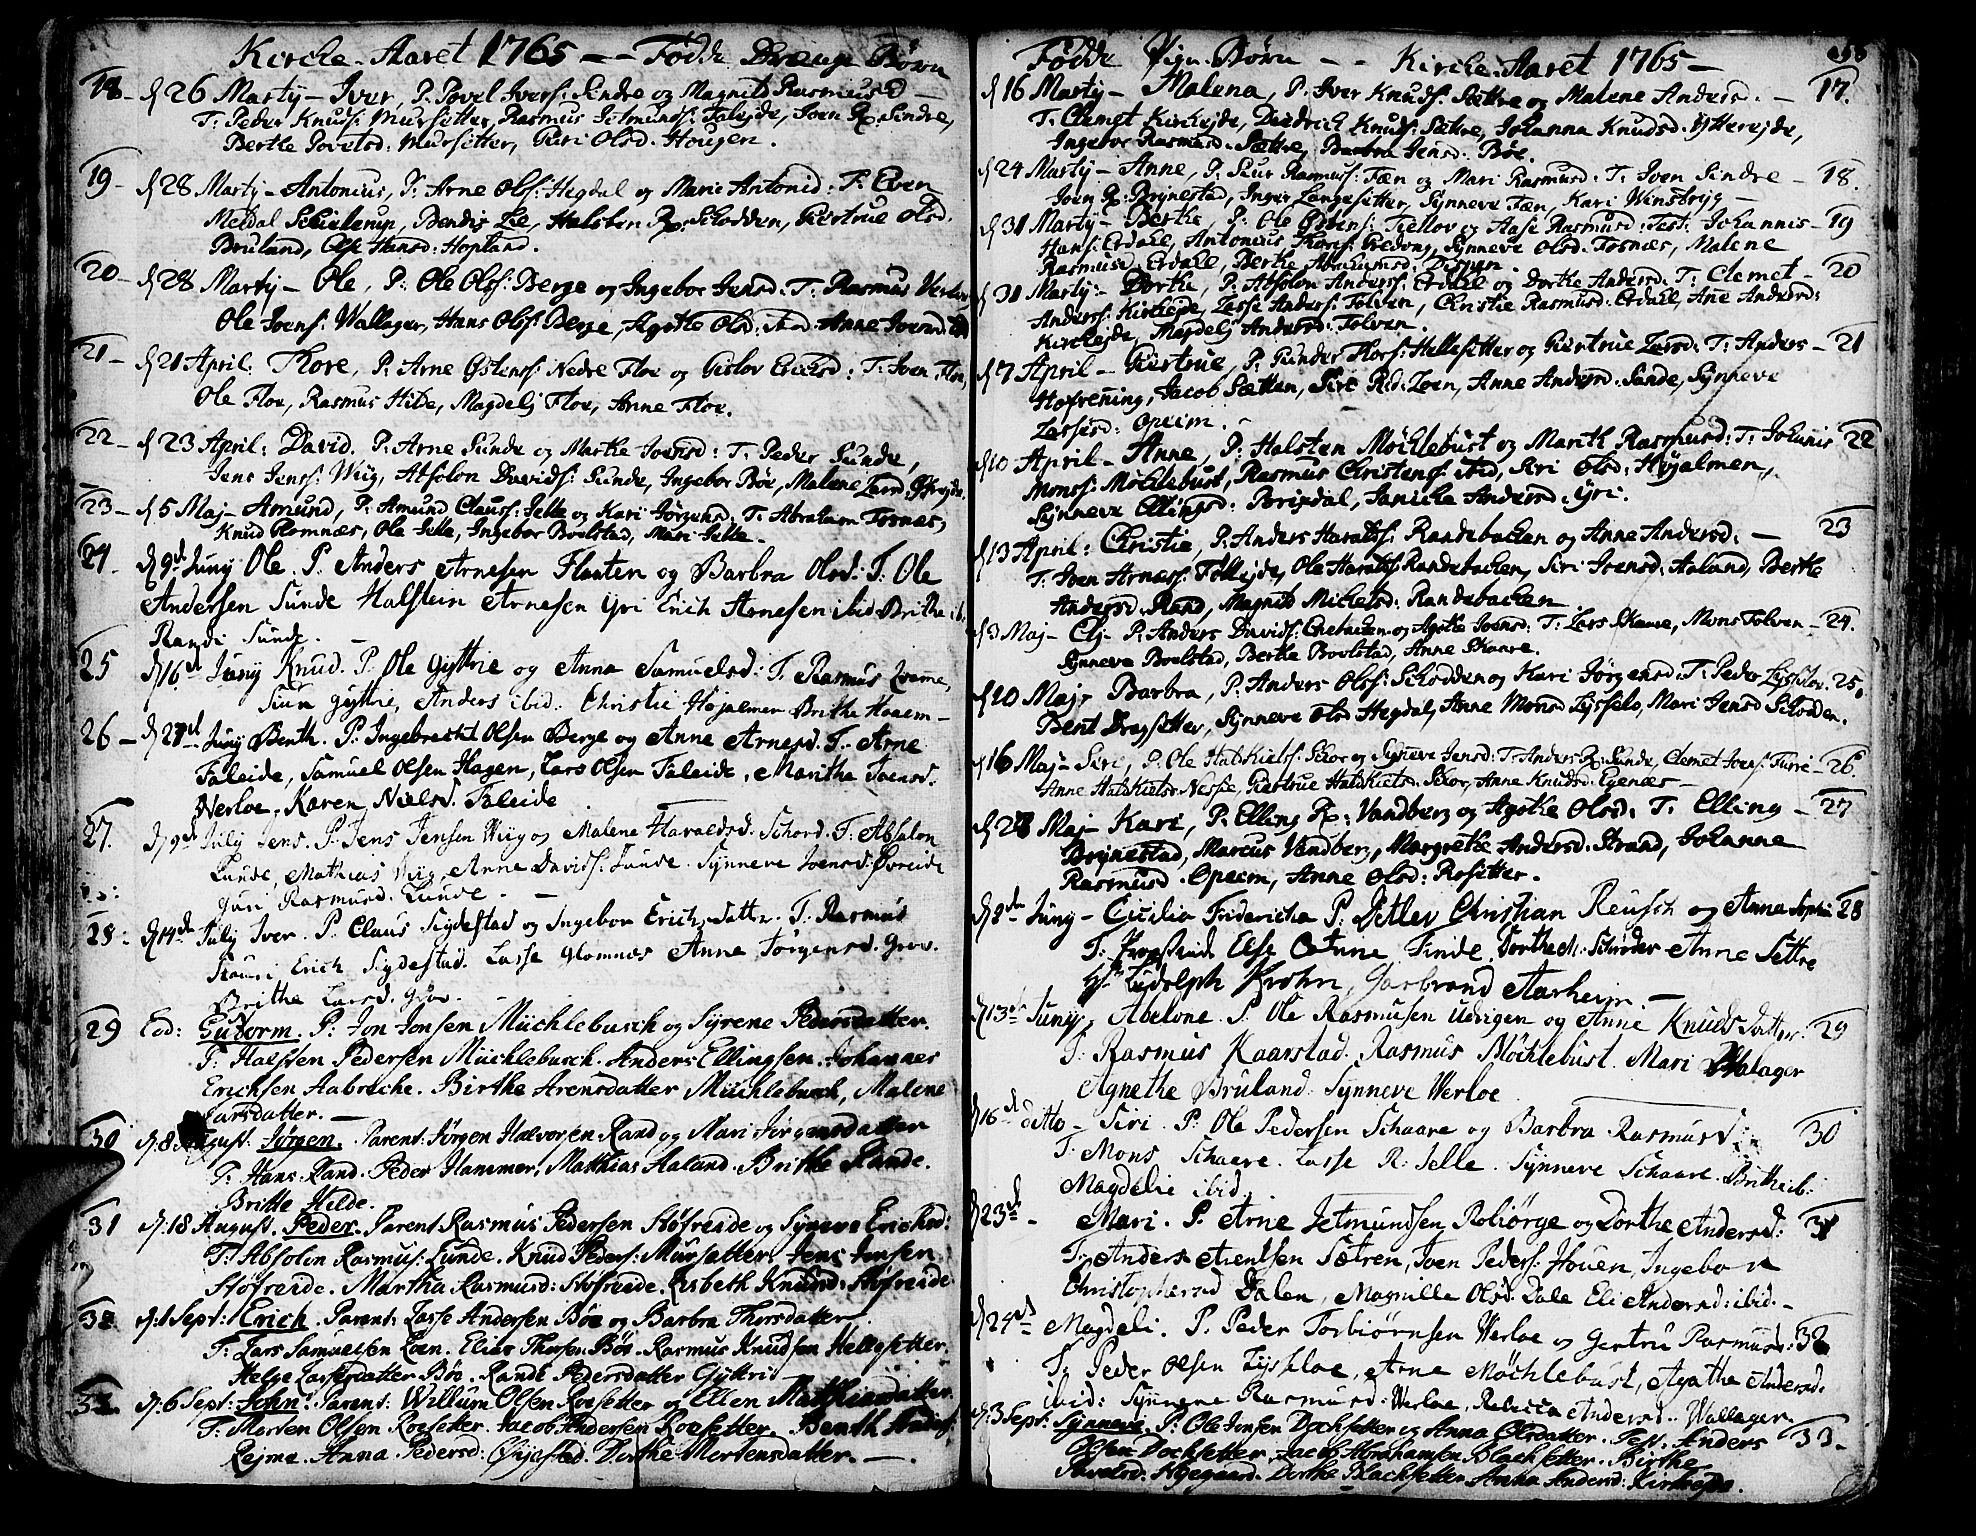 Kirche-Aaret 1765 — Fødde Drænge Børn
18 — d 26 Marty — Iver, P: Povel Ivers: Sindre og Magnild Rasmusd —
T: Peder Knuds: Mursetter, Rasmus Jetmunds: Faleide, Joen R: Sindre,
Berthe Povelsd: Mursetter, Guri Olsd: Hougen.
19 — d 28 Marty — Antonius, P: Arne Ols: Hegdal og Marie Antonid: T: Even
Meldal Schielerup, Bendix Lie, Halsten R: Schodden, Giertrue Olsd:
Bruland, Else Hansd: Hopland.
20 — d 28 Marty — Ole, P: Ole Ols: Berge og Ingebor Jensd: T: Rasmus Verloe
Ole Joens: Wallager, Hans Ols: Berge, Agethe Olsd: ibid Anne Joensd:
21 — d 21 April: Thore, P: Arne Østens: Nedre Floe og Gislov Erichsd: T: Joen Floe,
Ole Floe, Rasmus Hilde, Magdeli Floe, Anne Floe.
22 — d 23 April: David. P: Arne Sunde og Marthe Joensd: T: Peder Sunde,
Jens Jenss: Wiig, Absolon Davids: Sunde, Ingebor Bøe, Malene Larsd:
23 — d 5 Maj — Amund, P: Amund Clauss: Selle og Kari Jørgensd: T: Abraham Tosnæs,
Knud Glomnæs, Ole Selle, Ingebor Boelstad, Mari Selle.
24 — d 9d Juny Ole P: Anders Arnesen Flaaten og Barbra Olsd: T: Ole
Andersen Sunde Halstein Arnesen Yri Erich Arnesen ibid Brithe ib:
Randi Sunde. —
25 d 16d Juny Knud. P: Ole Gyttrie og Anna Samuelsd: T: Rasmus Loeme,
Siur Gyttrie, Anders ibid. Christie Høyalmen Brithe Haaem —
26 — d 27d Juny Benth. P: Ingebrecht Olsen Berge og Anne Arnesd. T: Arne
Faleide, Samuel Olsen Hagen, Lars Olsen Faleide, Maritha Joensd.
Werloe, Karen Nielsd. Faleide
27. d 9de July Jens. P: Jens Jensen Wiig og Malene Haraldsd. Schord. T: Absalon
Sunde, Mathias Wiig, Anne Davids: Sunde. Synneve Joensd: Øvreide
Guri Rasmusd. Sunde. —
28 — d 14de July Iver. P: Claus Sigdestad og Ingebor Erichsdattr. T: Rasmus
Erich Sigdestad. Lasse Glomnæs Anne Jørgensd. Grov.
Brithe Larsd. Grov.
29 Eod: Gutorm. P: Jon Jonsen Müchlebusch og Syrene Pedersdatter.
T: Halsten Pedersen Müchlebusch. Anders Ellingsen. Johannes
Erichsen Aabreche. Birthe Arensdatter Müchlebusch, Malene
Larsdatter. —
30 d. 8 August: Jørgen. Parent: Jørgen Halvorsen Rand og Mari Jørgensdatter
T: Hans Rand. Peder Hammer, Matthias Aaland. Brithe Rande.
Britte Hilde.
31 d. 18 August. Peder. Parent. Rasmus Pedersen Støfreide og Syneve Erichsd:
T: Absolon Rasmus: Sunde. Knud Peders: Mursetter, Jens Jonsen
Støfreide. Martha Rasmusd: Støfreide. Lisbeth Knudsd: Støfreide
32. d. 1 Sept: Erich. Parent: Lasse Andersen Bøe og Barbra Thorsdatter.
T: Lars Samuelsen Loen. Elias Thorsen Bøe. Rasmus Knudsen Hellesetter.
Helge Lassesdatter Bøe. Rande Pedersdatter Gyttri
33. d. 6 Sept: John: Parent: Willum Olsen Roesetter og Ellen Matthiasdatter.
T: Morten Olsen Roesetter. Jacob Andersen Roesetter. Benth
Rejme. Anna Pedersd: Øijestad. Dorthe Mortensdatter. —
Fødde Pige-Børn — Kirche-Aaret 1765 —
d 16 Marty — Malena, P: Iver Knuds: Sættre og Malene Andersd: — 17.
T: Clemet Kircheide, Diedrich Knuds: Sættre, Johanna Knudsd: Yttereide,
Ingebor Rasmusd: Sættre, Barbra Jensd: Bøe.
d 24 Marty — Anne, P: Siur Rasmus: Tæn og Mari Rasmusd: T: Joen Sindre — 18.
Joen R: Brynestad, Inger Langesetter, Synneve Tæn, Kari Winsbryg —
d 31 Marty — Berthe, P: Ole Østens: Tiellov og Aase Rasmusd: Test: Johannis — 19
Hans: Erdahl, Antonius Thors: Gredung, Synneve Olsd: Tosnæs, Malene
Rasmusd: Erdahl, Berthe Abrahamsd: Dispen.
d 31 Marty: Dorthe, P: Absolon Anders: Erdahl og Dorthe Andersd: T: Clemet — 20
Anders: Kircheide, Lasse Anders: Tolven, Christie Rasmusd: Erdahl, Ane Andersd:
Kircheide, Magdeli Andersd: Tolven.
d 7 April — Giertrue, P: Gunder Thors: Hellesetter og Giertrue Larsd: T: Anders — 21
Hofrening, Jacob Sætten, Siri Rd: Loen, Anne Andersd: Sande, Synneve
Lassesd: Opeim.
d 10 April — Anne, P: Halsten Møchlebust og Marith Rasmusd: T: Johanis 22
Monss: Møchlebust, Rasmus Christens: ibid, Siri Olsd: Høyalmen,
Synneve Ellingsd: Brigdal, Saniche Andersd: Yri.
d 13 April: Christie, P: Anders Haralss: Randebachen og Anne Andersd: — 23
T: Joen Arness: Tølleide, Ole Haralss: Randebachen, Siri Ivensd: Aaland, Berthe
Andersd: Rand, Magnild Michelsd: Randebachen
d 3 Maj — Elj P: Anders Davids: Enebachen og Agethe Joensd: T: Lars Skaare, Mons Tolven — 24.
Synneve Boelstad, Berthe Boelstad, Anne Skaare.
d 10 Maj, Barbra, P: Anders Ols: Schodden og Kari Jørgensd: T: Peder Lysseloe. 25.
Bent Dragsetter, Synneve Olsd Hegdal, Anne Monsd Lysselo, Mari Jensd Schodden.
d 16 Maj — Siri, P: Ole Halskiels: Skor og Synneve Jensd: T: Anders R: Sunde, Clemet Joens: Turri — 26.
Anne Halskielsd: Nesse, Giertrue Halskielsd: Skor, Anne Knudsd: Egenæs —
d 28 Maj — Kari, P: Elling R: Vandberg og Agethe Olsd: T: Elling — 27
Brynestad, Marcus Vandberg, Margrethe Andersd: Strand, Johanne
Rasmusd: Opeim, Anne Olsd: Rosetter.
d 2de Juny — Cicilia Fridericha P: Detlev Christian Reusch og Anna Sophia 28
T: Else Anne Finde, Dorthe Anne Settre
Hr Ludolph Krohn, Garbrand Aarheim —
d 13de Juny, Abelone. P: Ole Rasmusen Udvigen og Anne Knudsdatter. 29
T: Rasmus Kaarstad. Rasmus Møchlebust. Mari Walager
Agnethe Bruland. Synneve Werloe
d 16d ditto — Siri. P: Ole Pedersen Schaare og Barbra Rasmusd: 30
T: Mons Schaare. Lasse R: Selle. Synneve Schaare. Brithe ib:
Magdelie ibid.
d 23de — Mari. P. Arne Jetmundsen Robiørge og Dorthe Andersd: 31
T: Anders Arentsen Sætren, Joen Peders: Houen, Ingebor
Christophersd Dalen, Magnille Olsd. Dale Eli Andersd: ibid. —
d 24de Magdeli. P. Peder Torbiørnsen Werloe og Gertru Rasmusd: 32
T: Peder Olsen Lysseloe, Arne Møchlebust, Agathe Andersd.
ibid: Synneve Rasmusd: Werloe, Rebecca Andersd. Wallager.
d. 3 Sept: Synneve. P: Ole Jonsen Dochsetter og Anna Olsdatter. Test. Anders 33.
Olsen Dochsetter. Jacob Abrahamsen Blachsetter. Birthe
Myegaard. Dorthe Blachsetter. Anna Andersd: Kircheide.